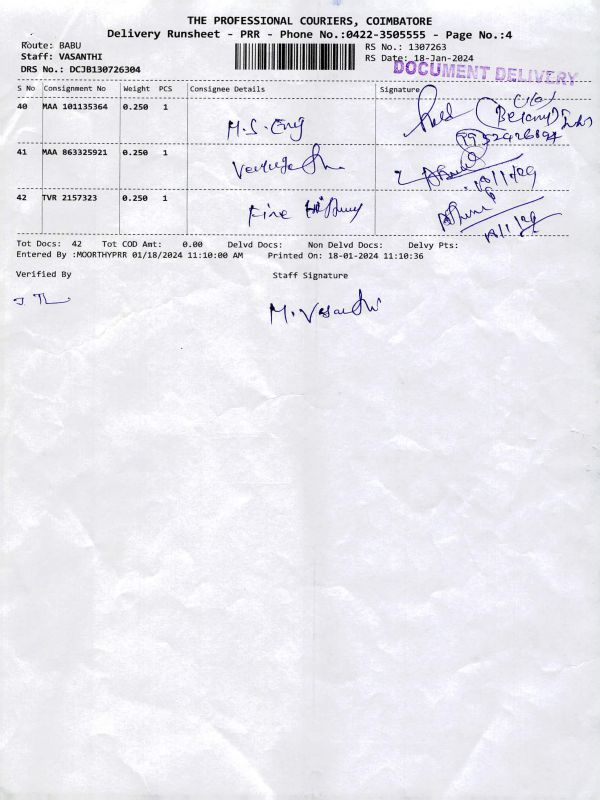 THE PROFESSIONAL COURIERS, COIMBATORE
Delivery Runsheet - PRR - Phone No.:0422-3505555 - Page No.:4
Route: BABU
Staff: VASANTHI
DRS No.: DCJB130726304
RS No.: 1307263
RS Date: 18-Jan-2024
DOCUMENT DELIVERY
S No Consignment No Weight PCS Consignee Details Signature
40 MAA 101135364 0.250 1 M.S. Eng
41 MAA 863325921 0.250 1
18/1/24
42 TVR 2157323 0.250 1 Fine
18/1/24
Tot Docs: 42 Tot COD Amt: 0.00 Delvd Docs: Non Delvd Docs: Delvy Pts:
Entered By :MOORTHYPRR 01/18/2024 11:10:00 AM Printed On: 18-01-2024 11:10:36
Verified By Staff Signature
M. Vasanthi